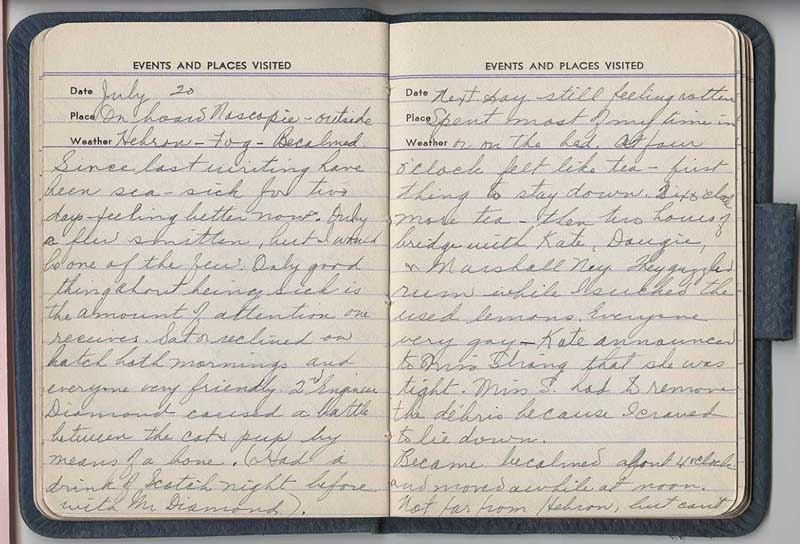 EVENTS AND PLACES VISITED
Date July 20
Place On board Nascopie - outside
Weather Hebron - Fog - Becalmed.
Since last writing have
been sea-sick for two
days - feeling better now. Only
a few smitten, but I would
be one of the few. Only good
thing about being sick is
the amount of attention one
receives. Sat or reclined on
hatch both mornings and
everyone very friendly. 2nd Engineer
Diamond caused a battle
between the cat & pup by
means of a bone. (Had a
drink of Scotch night before
with Mr Diamond).
EVENTS AND PLACES VISITED
Date Next day still feeling rotten
Place Spent most of my time in
Weather or on the bed. At four
o'clock felt like tea - first
thing to stay down. Six o'clock
more tea - then two hours of
bridge with Kate, Dougie,
& Marshall Ney. They guzzled
rum while I sucked the
used lemons. Everyone
very gay - Kate announced
to Miss Strong that she was
tight. Miss S. had to remove
the debris because I craved
to lie down.
Became becalmed about 4 o'clock
and moved awhile at noon.
Not far from Hebron, but can't